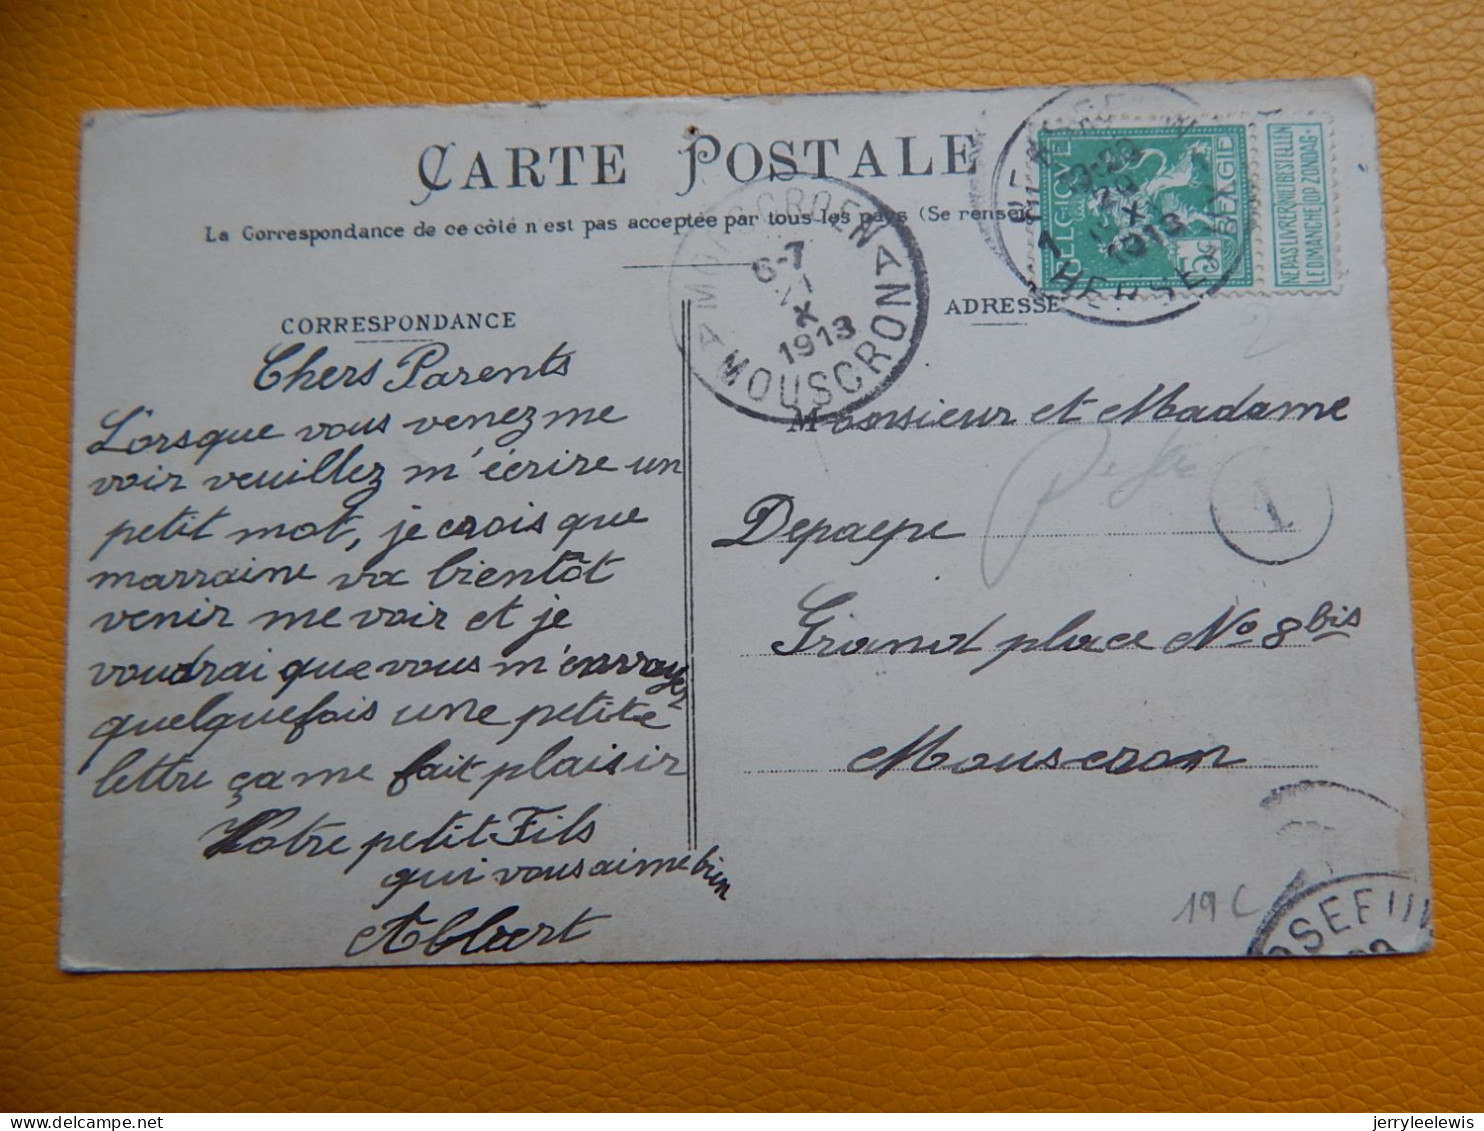 CARTE POSTALE
La Correspondance de ce côté n'est pas acceptée par tous les pays (Se renseig
CORRESPONDANCE
Chers Parents
Lorsque vous venez me
voir veuillez m'écrire un
petit mot, je crois que
marraine va bientôt
venir me voir et je
voudrai que vous m'envoyez
quelquefois une petite
lettre ça me fait plaisir
Votre petit Fils
qui vous aime bien
Albert
MOESCROEN
6-7
X
1913
MOUSCRON
ADRESSE
Monsieur et Madame
Depaepe
Grand place No 8bis
Mouscron
BELGIQUE
BELGIË
5c
19-20
X
1913
HERSEAUX
NE PAS LIVRER LE DIMANCHE
NIET BESTELLEN OP ZONDAG
1
19 C
jerryleelewis